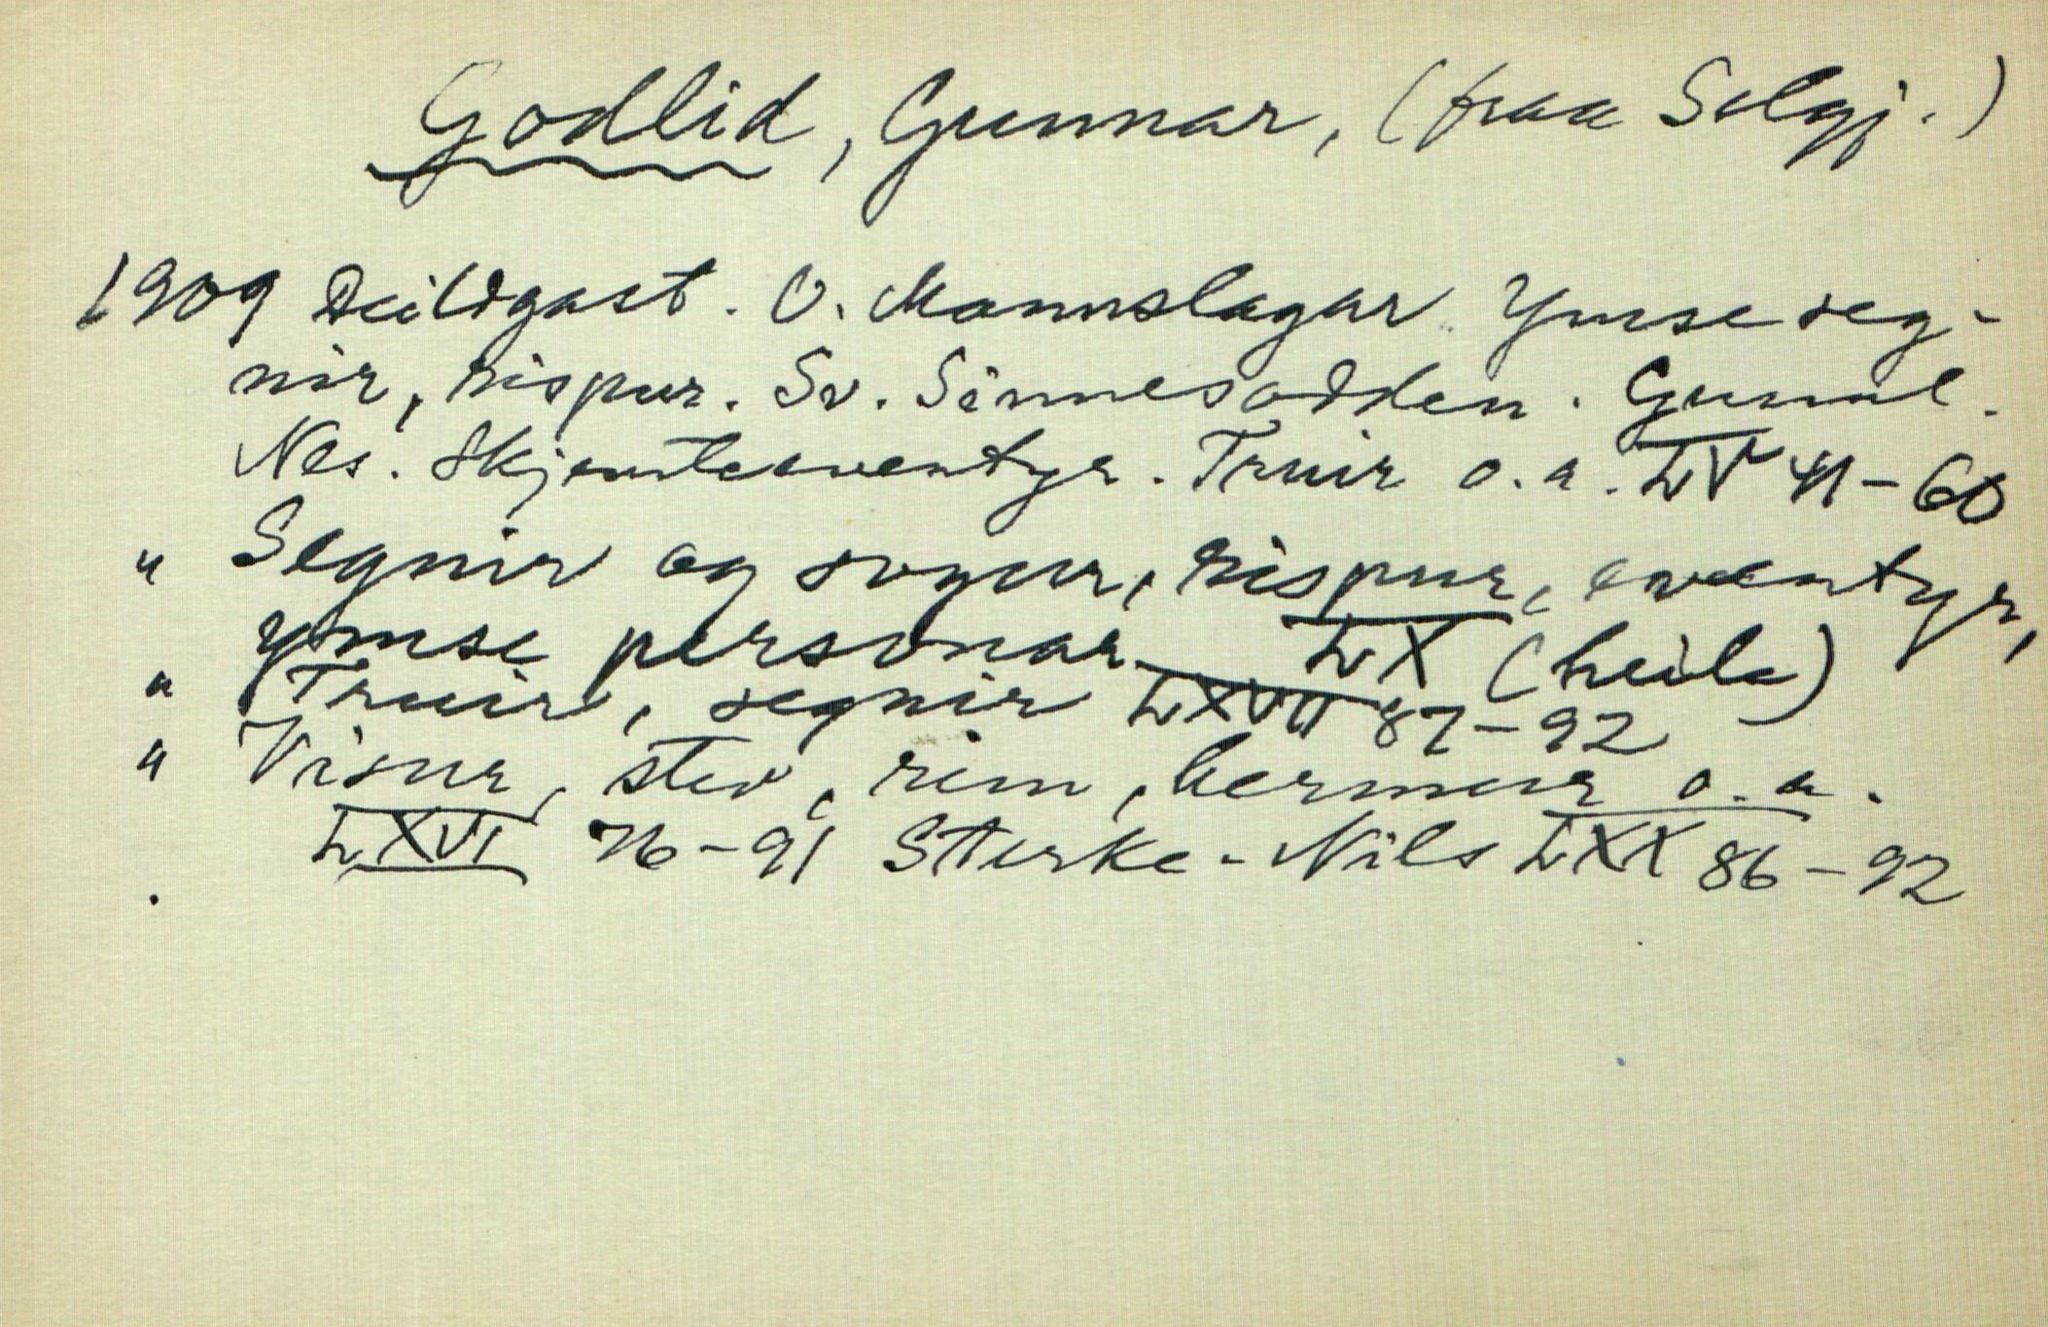 Godlid, Gunnar, (fraa Selgj.)
1909 Deildgast. O. Mannslagar Ymse seg-
nir, rispur. Sv. Sinnesodden. Gunnul.
Nes. Skjemteeventyr. Truir o. a. LV 41-60
" Segnir og sogur, rispur, eventyr,
ymse personar. LX (heile)
" Truir, segnir LXVII 87-92
" Visur, stev, rim, hermur o. a.
LXVI 76-91 Sterke-Nils LXX 86-92